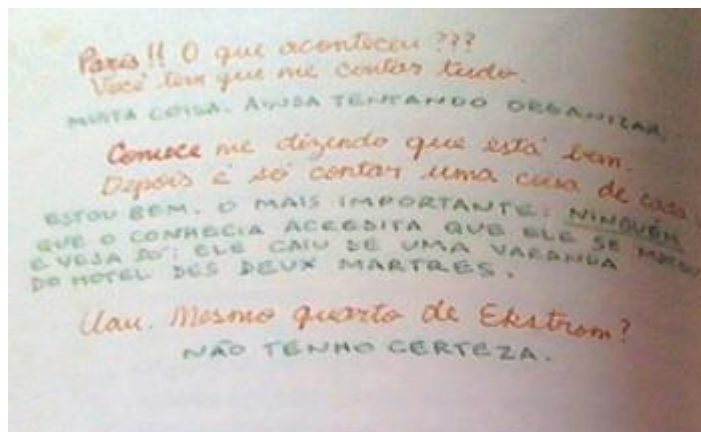 Paris!! O que aconteceu???
Você tem que me contar tudo.
MUITA COISA. AINDA TENTANDO ORGANIZAR.
Comece me dizendo que está bem.
Depois é só contar uma coisa de cada
ESTOU BEM. O MAIS IMPORTANTE: NINGUÉM
QUE O CONHECIA ACREDITA QUE ELE SE MATOU
E VEJA SÓ: ELE CAIU DE UMA VARANDA
DO HOTEL DES DEUX MARTRES.
Uau. Mesmo quarto de Ekstrom?
NÃO TENHO CERTEZA.